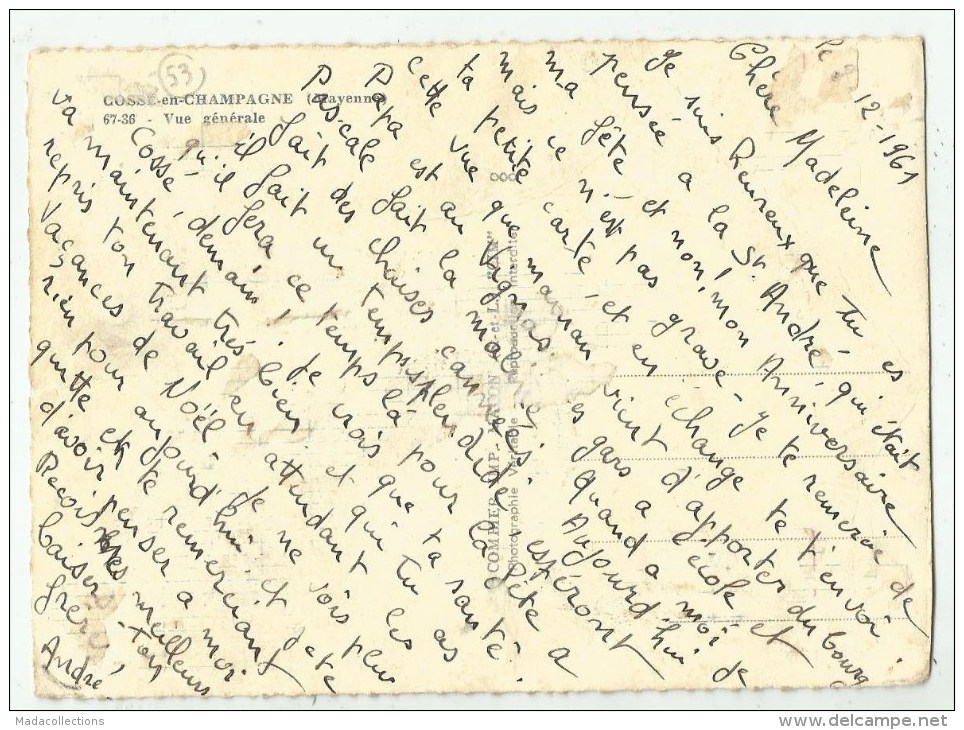 53
COSSÉ-en-CHAMPAGNE (Mayenne)
67-36 - Vue générale
COMBIER IMP. MACON
Photographie Véritable
Interdite
Le 8 12-1961
Chère Madeleine
Je suis heureux que tu es
pensée a la St. André, qui était
ma fête et non, mon Anniversaire
mais ce n'est pas grave - Je te remercie de
ta petite carte, et en échange te t'envoi
cette vue que maman vient d'apporter du bourg
Papa est au Vignas. les gars a l'école et
Pascale fait la quand a moi
fait des chaises cannées. Aujourd'hui
il fait un temps splendide, espéront
qu'il fera ce temps là pour la fête a
Cossé, demain. Je crois que ta santé
va maintenant très bien et que tu as
repris ton travail en attendant les
vacances de Noël. Je ne vois plus
rien pour aujourd'hui et je te
quitte en te remerciant
d'avoir penser a moi
Recois mes meilleurs
baiser - ton
frère,
André
Madacollections
www.delcampe.net